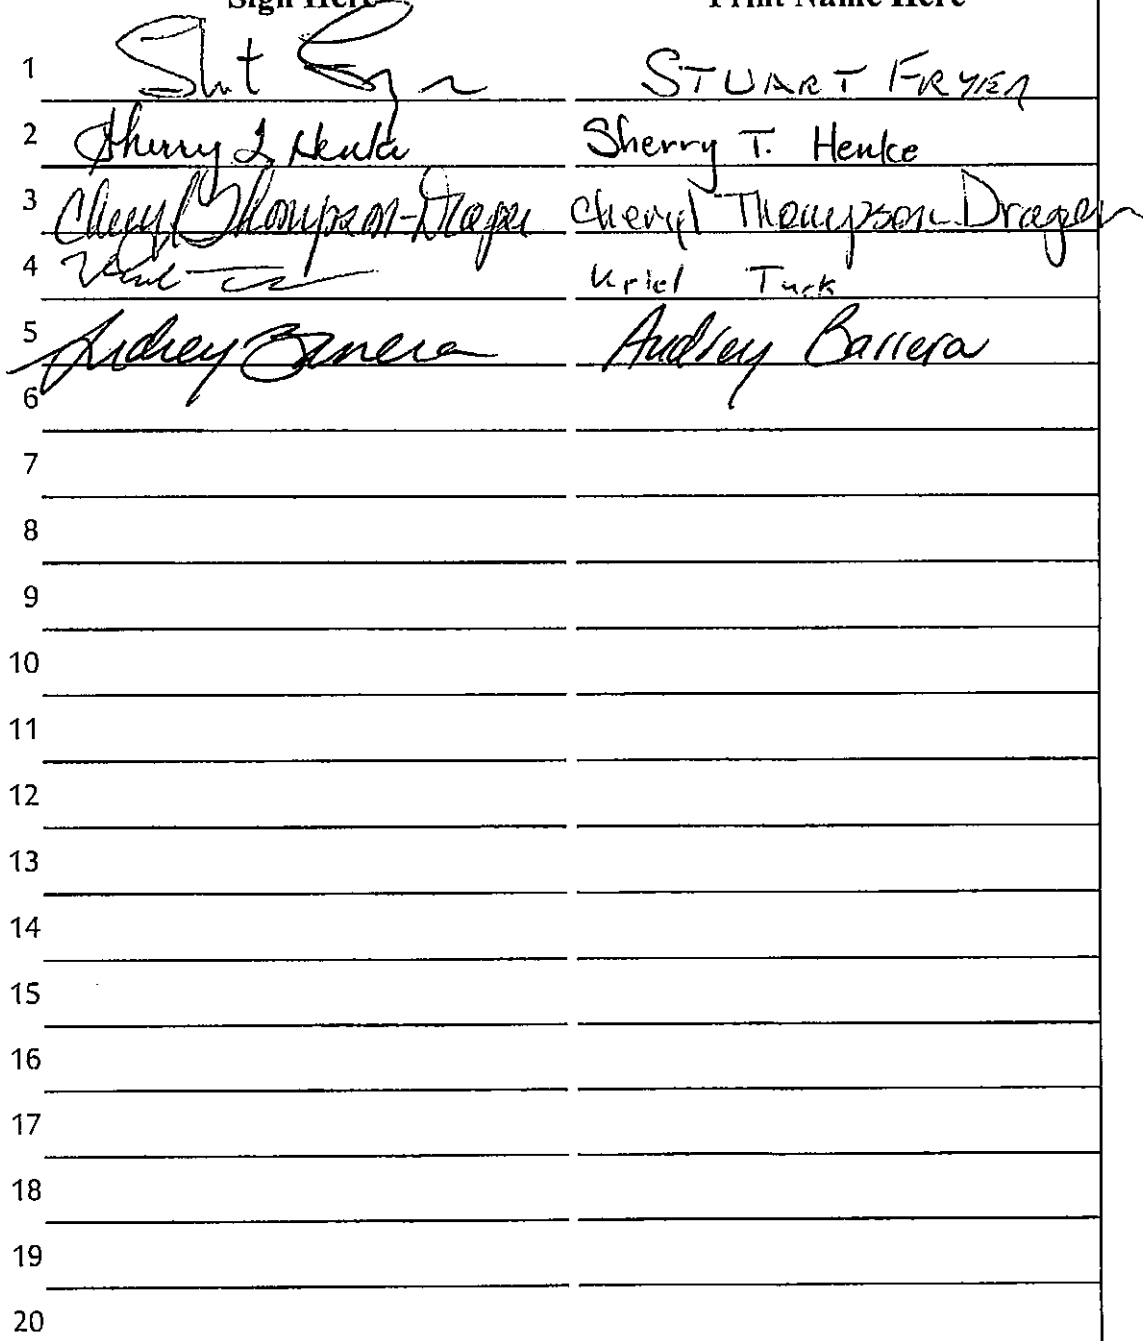 Sign Here Print Name Here
1 STUART FRYER
2 Sherry T. Henke Sherry T. Henke
3 Cheryl Thompson-Draper Cheryl Thompson-Draper
4 Tuck
5 Audrey Barrera Audrey Barrera
6
7
8
9
10
11
12
13
14
15
16
17
18
19
20